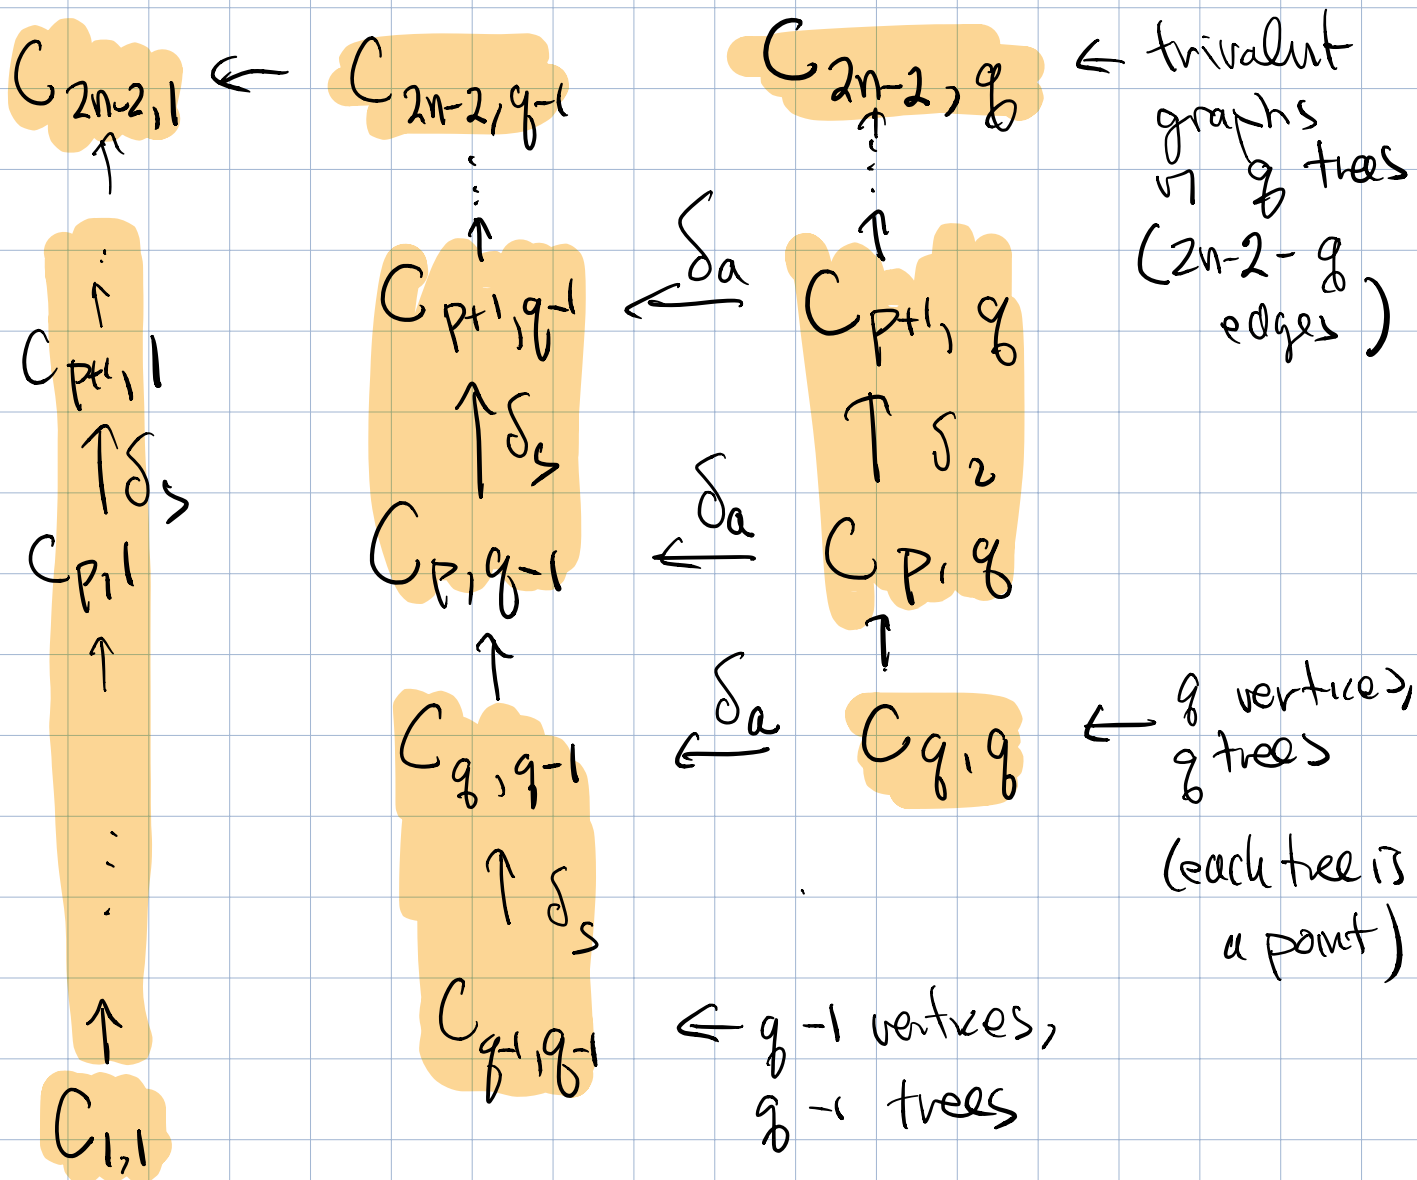 C_{2n-2,1} ← C_{2n-2,q-1} C_{2n-2,q} ← trivalent
graphs
↑ ⋮ ⋮ q trees
(2n-2-q
edges)
⋮ ↑ ↑ δ_a ↑
C_{p+1,1} C_{p+1,q-1} ← C_{p+1,q}
↑ δ_s ↑ δ_s ↑ δ_2
C_{p,1} C_{p,q-1} ←^{δ_a} C_{p,q}
↑ ↑ ↑
C_{q,q-1} ←^{δ_a} C_{q,q} ← q vertices,
q trees
⋮ ↑ δ_s (each tree is
a point)
↑ C_{q-1,q-1} ← q-1 vertices,
q-1 trees
C_{1,1}